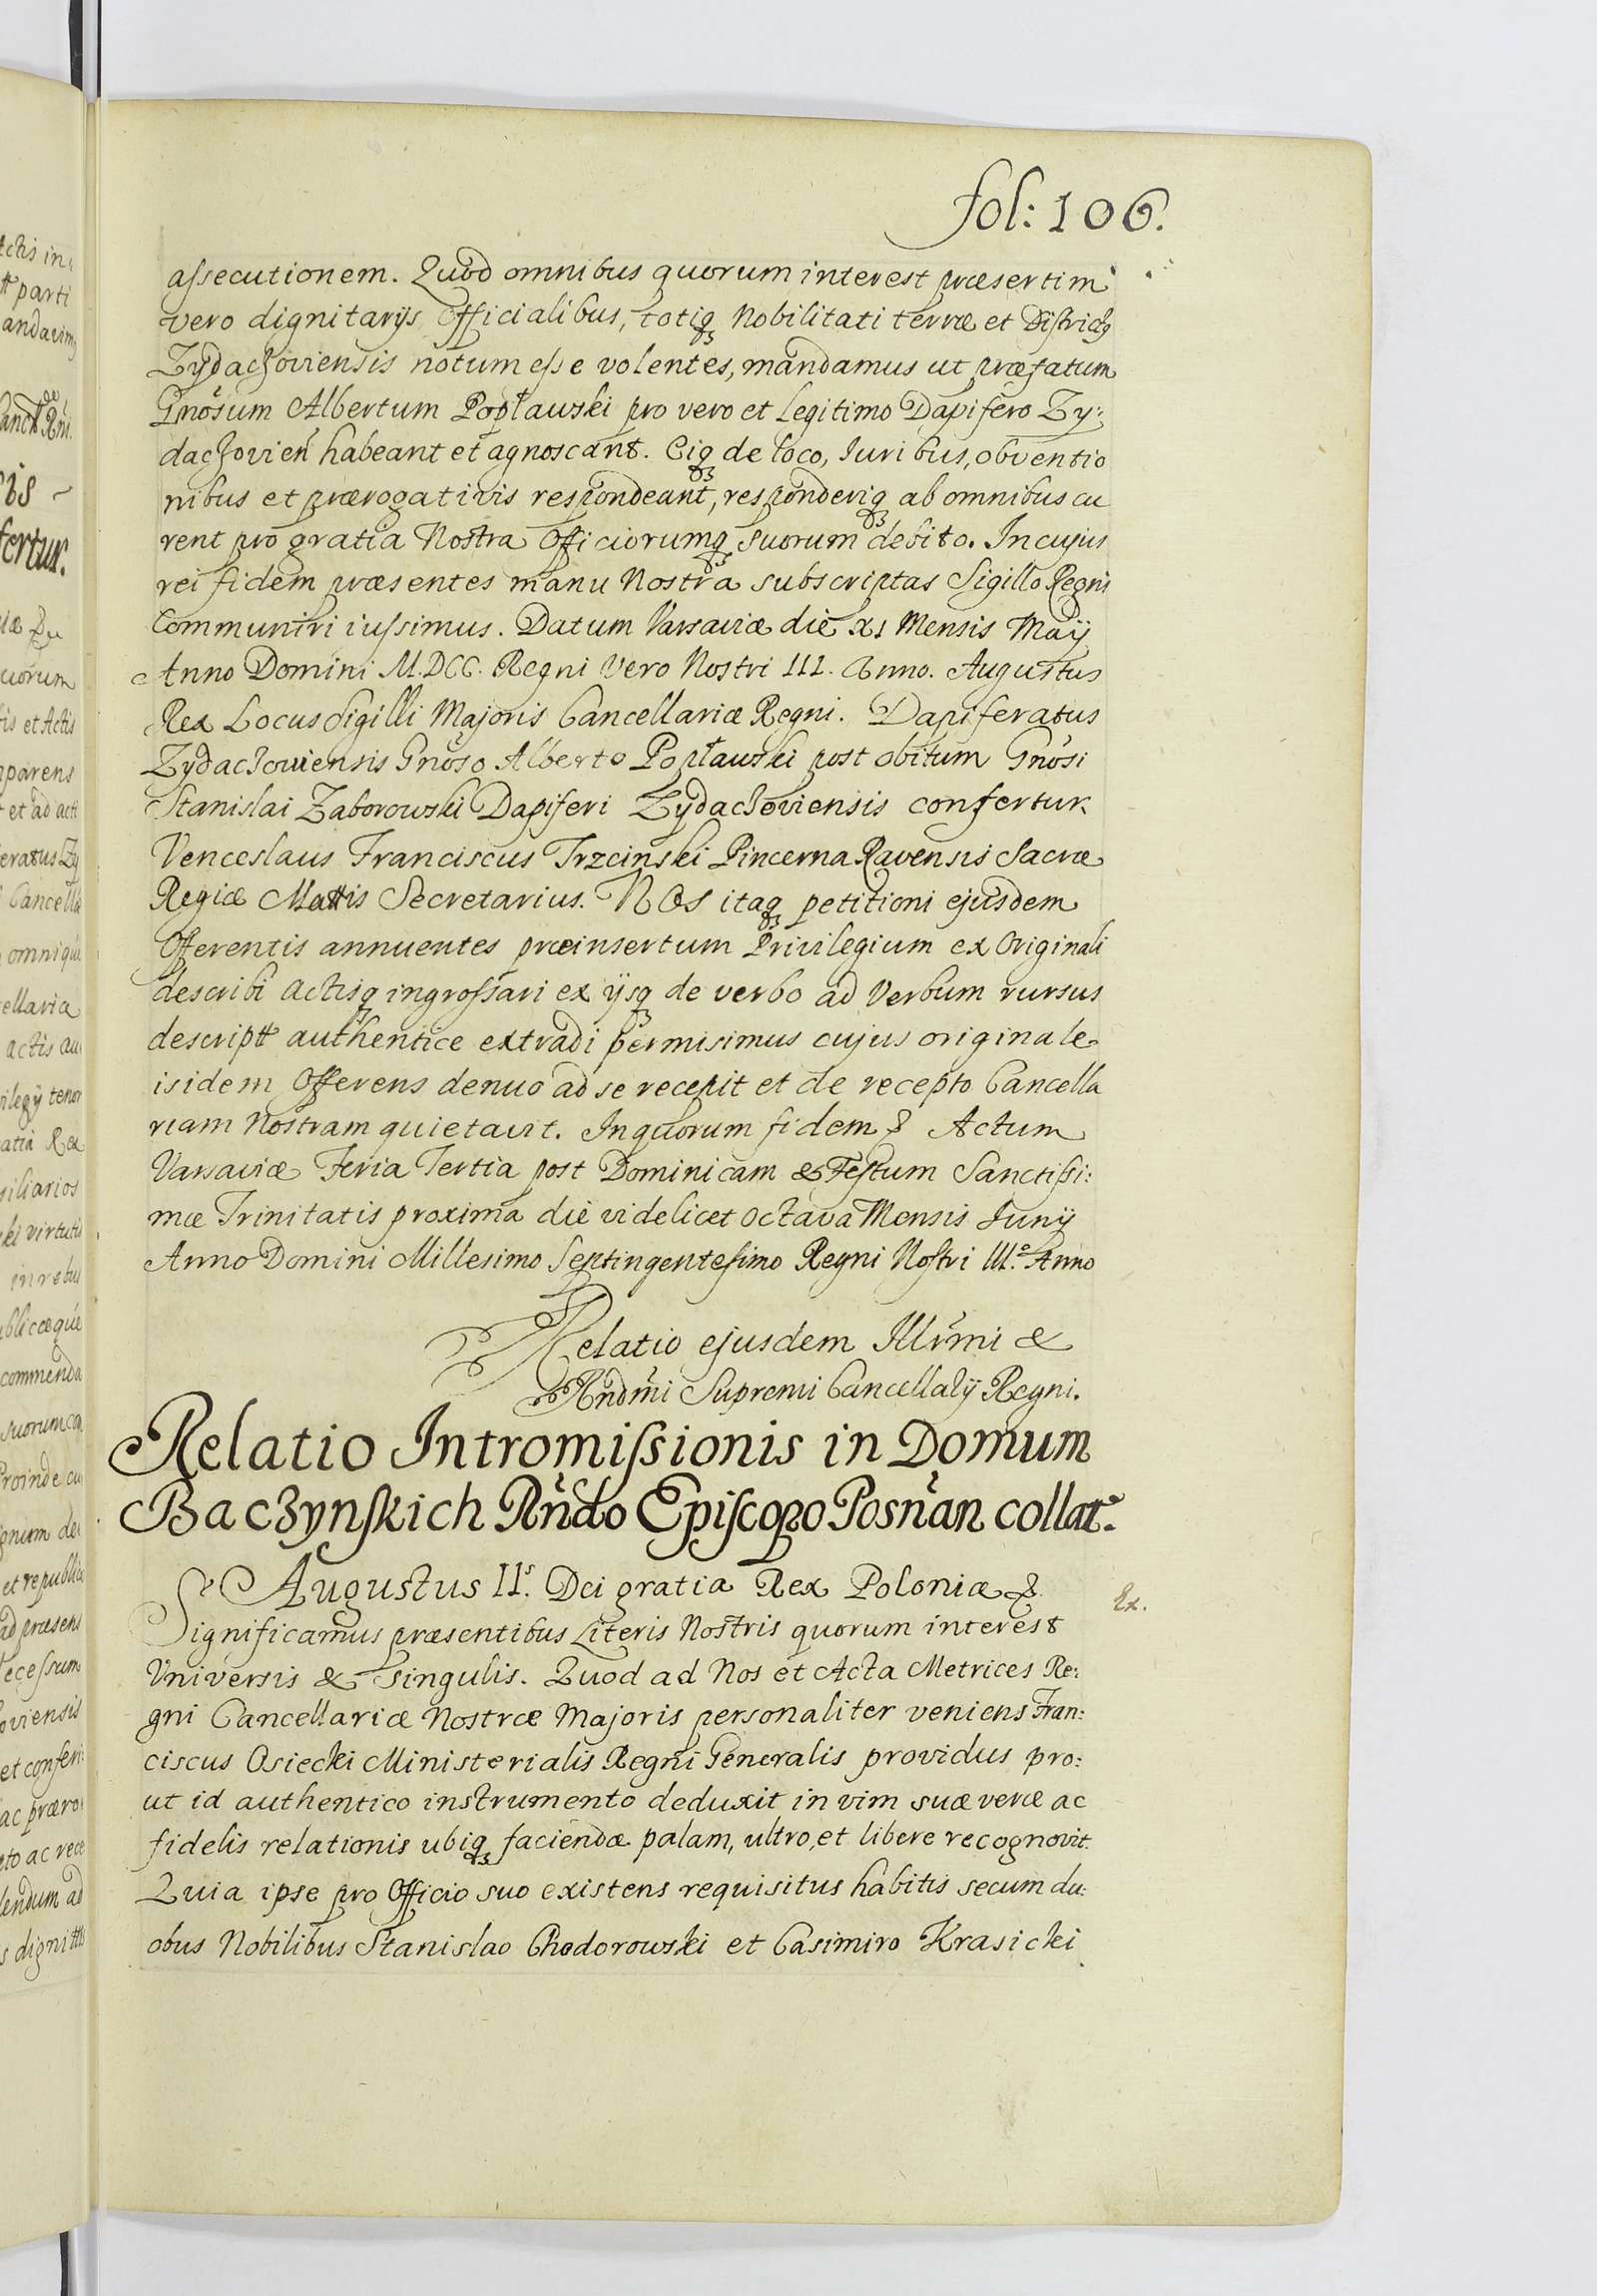 fol: 106.
assecutionem. Quod omnibus quorum interest præsertim
vero dignitarijs Officialibus, totiq3 Nobilitati terræ et Districtq
Zydachoviensis notum esse volentes, mandamus ut præfatum
Gnosum Albertum Popławski pro vero et legitimo Dapifero Zy:
dachovien habeant et agnoscant. Eiq3 de loco, Iuribus, obventio
nibus et prærogativis respondeant, responderiq3 ab omnibus cu
rent pro gratia Nostra Officiorumq3 suorum debito. In cujus
rei fidem præsentes manu Nostra subscriptas Sigillo Regni
Communiri iussimus. Datum Varsaviæ die XI Mensis Maij
Anno Domini M.DCC. Regni Vero Nostri III. Anno. Augustus
Rex Locus Sigilli Majoris Cancellariæ Regni. Dapiferatus
Zydachowiensis Gnoso Alberto Popławski post obitum Gnosi
Stanislai Zaborowski Dapiferi Zydachoviensis confertur
Venceslaus Franciscus Trzcinski Pincerna Ravensis Sacræ
Regiæ Mattis Secretarius. NOS itaq3 petitioni ejusdem
Offerentis annuentes præinsertum Privilegium ex Originali
describi actisq3 ingrossari ex ijsq3 de verbo ad Verbum rursus
descriptt authentice extradi permisimus cujus originale
isidem Offerens denuo ad se recepit et de recepto Cancella
riam Nostram quietavit. In quorum fidem & Actum
Varsaviæ Feria Tertia post Dominicam & Festum Sanctissi:
mæ Trinitatis proxima die videlicet Octava Mensis Iunij
Anno Domini Millesimo Septingentesimo Regni Nostri III.o Anno
Relatio ejusdem Illrmi &
Rndmi Supremi Cancellaÿ Regni.
Relatio Intromissionis in Domum
Baczynskich Rndo Episcopo Posnan collat.
Augustus II.s Dei gratia Rex Poloniæ &
Ex.
Significamus præsentibus Literis Nostris quorum interest
Universis & singulis. Quod ad Nos et Acta Metrices Re:
gni Cancellariæ Nostræ Majoris personaliter veniens Fran:
ciscus Osiecki Ministerialis Regni Generalis providus pro:
ut id authentico instrumento deduxit in vim suæ veræ ac
fidelis relationis ubiq3 faciendæ palam, ultro, et libere recognovit.
Quia ipse pro Officio suo existens requisitus habitis secum du:
obus Nobilibus Stanislao Chodorowski et Casimiro Krasicki